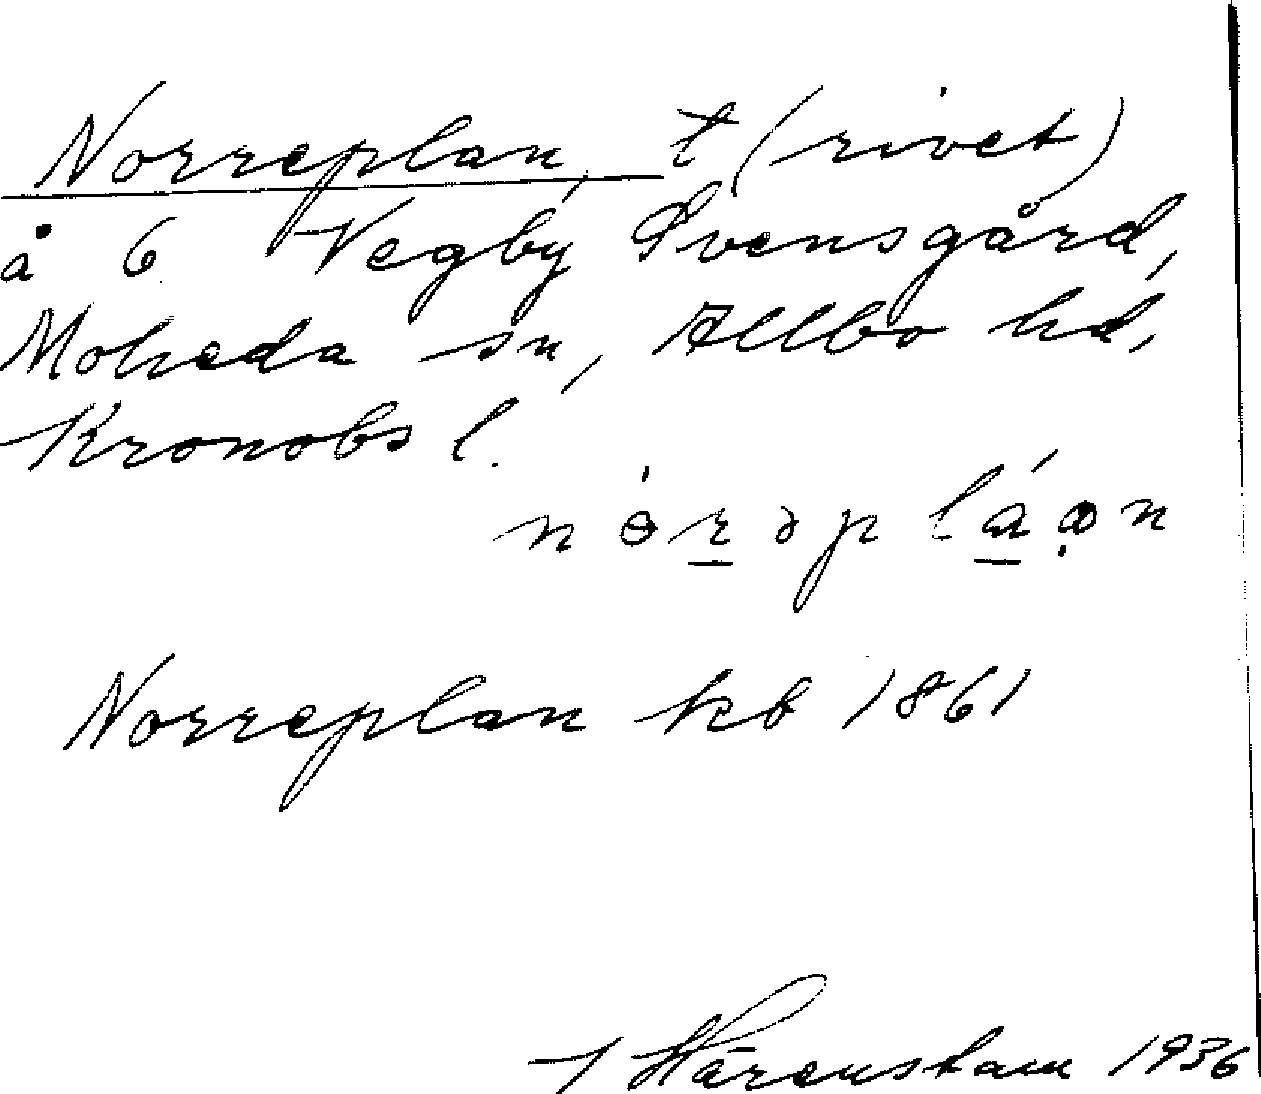 Norreplan, t (rivet)
å 6 Vegby Svensgård,
Moheda sn, Allbo hd,
Kronobs l.
Norreplan kb 1861
Härenstam 1936